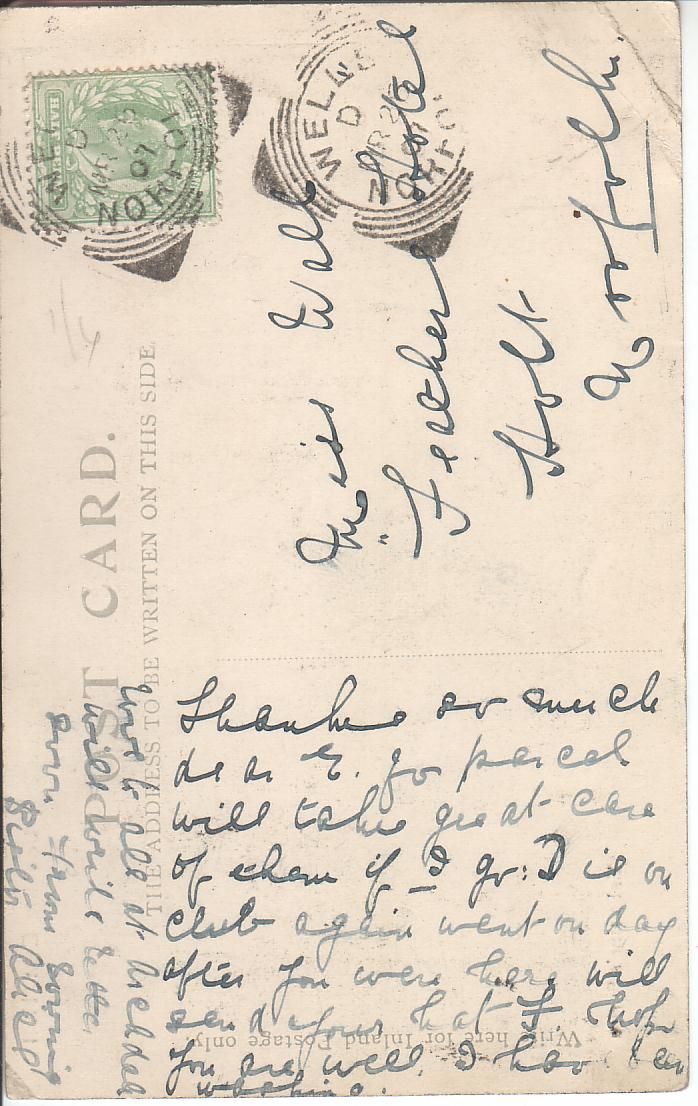 POST CARD.
THE ADDRESS TO BE WRITTEN ON THIS SIDE
WELLS
D
MR 25
07
NORFOLK
WELLS
D
MR 25
07
NORFOLK
Miss Wall
"Feathers Hotel
Holt
Norfolk.
Write here for Inland Postage only
Thanks so much
dear E. for parcel
will take great care
of them if I go: D is on
club again went on day
after you were here will
send your hat F. hope
you are well I have been
washing.
Love to all at
will write letter
soon from loving
Sister Alice